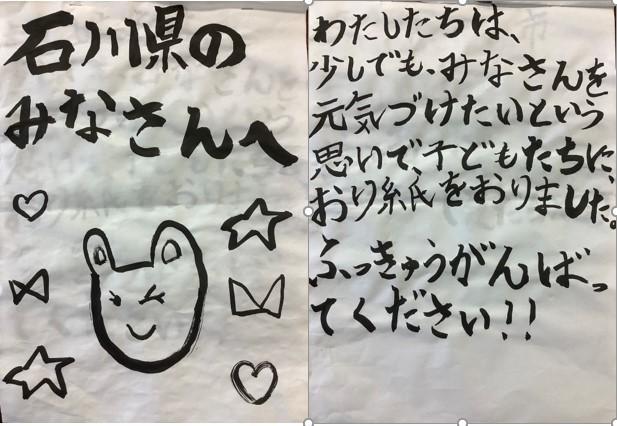 石川県の
みなさんへ
わたしたちは、
少しでも、みなさんを
元気づけたいという
思いで、子どもたちに、
おり紙をおりました。
ふっきゅうがんばっ
てください!!